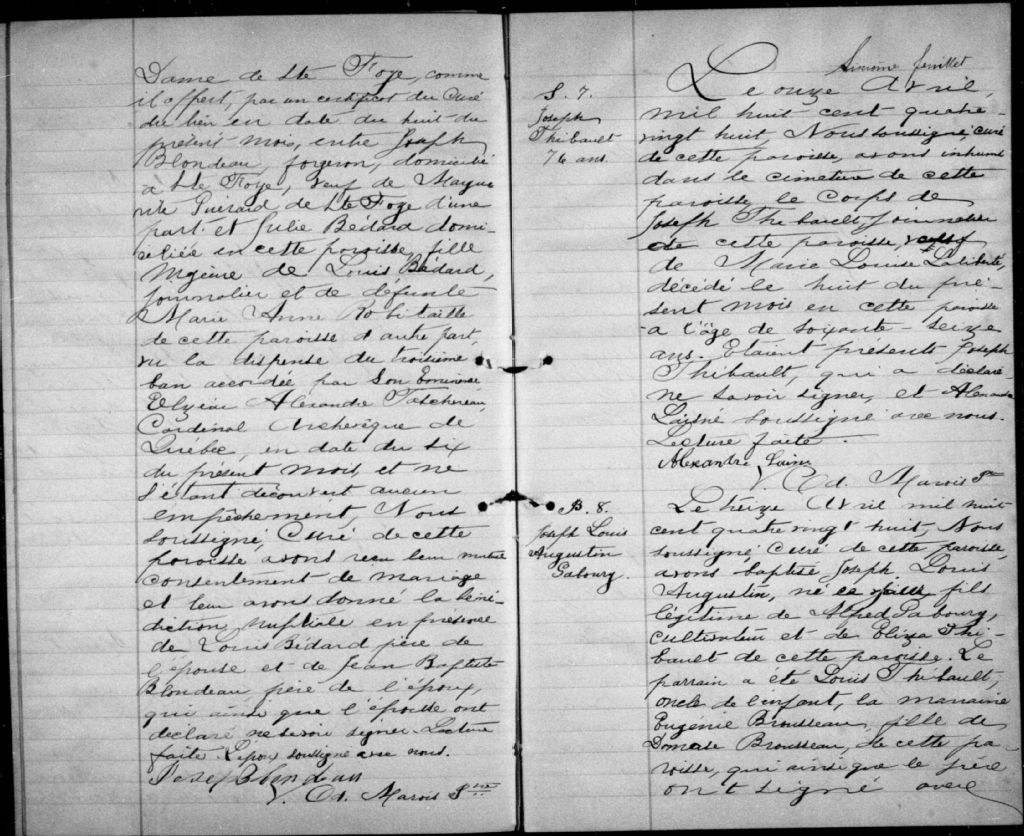 Dame de Ste Foye, comme
il appert, par un certificat du Curé
du lieu en date du huit du
présent mois, entre Joseph
Blondeau, forgeron, domicilié
à Ste Foye, veuf de Margue
rite Guérard de Ste Foye d'une
part et Julie Bédard domi-
ciliée en cette paroisse, fille
mgeure de Louis Bédard,
journalier et de défunte
Marie Anne Robitaille
de cette paroisse d'autre part,
vu la dispense du troisième
ban accordée par Son Eminence
Elzéar Alexandre Taschereau,
Cardinal Archevêque de
Québec, en date du six
du présent mois et ne
s'étant découvert aucun
empêchement, Nous
soussigné, Curé de cette
paroisse avons reçu leur mutuel
consentement de mariage
et leur avons donné la béné-
diction nuptiale en présence
de Louis Bédard père de
l'épouse et de Jean Baptiste
Blondeau père de l'époux,
qui ainsi que l'épouse ont
déclaré ne savoir signer. Lecture
faite. L'époux soussigné avec nous.
Josef Blondeau
V. Ed. Marois Ptre
feuillet
S. 7.
Joseph
Thibault
76 ans.
Le onze Avril,
mil huit cent quatre-
vingt huit Nous soussigné, curé
de cette paroisse, avons inhumé
dans le cimetière de cette
paroisse le corps de
Joseph Thibault journalier
de cette paroisse, veuf
de Marie Louise Laliberté,
décédé le huit du pré-
sent mois en cette paroisse
à l'âge de soixante-seize
ans. Etaient présents Joseph
Thibault, qui a déclaré
ne savoir signer, et Alexandre
Lainé soussigné avec nous.
Lecture faite.
Alexandre Lainé
V. Ed. Marois Ptre
B. 8.
Joseph Louis
Augustin
Gabourg.
Le treize Avril mil huit
cent quatre vingt huit, Nous
soussigné, Curé de cette paroisse,
avons baptisé Joseph Louis
Augustin, né ce jour, fils
légitime de Alfred Gabourg,
cultivateur et de Eliza Thi-
bault de cette paroisse. Le
parrain a été Louis Thibault,
oncle de l'enfant, la marraine
Eugénie Brousseau, fille de
Domase Brousseau, de cette pa-
roisse, qui ainsi que le père
ont signé avec